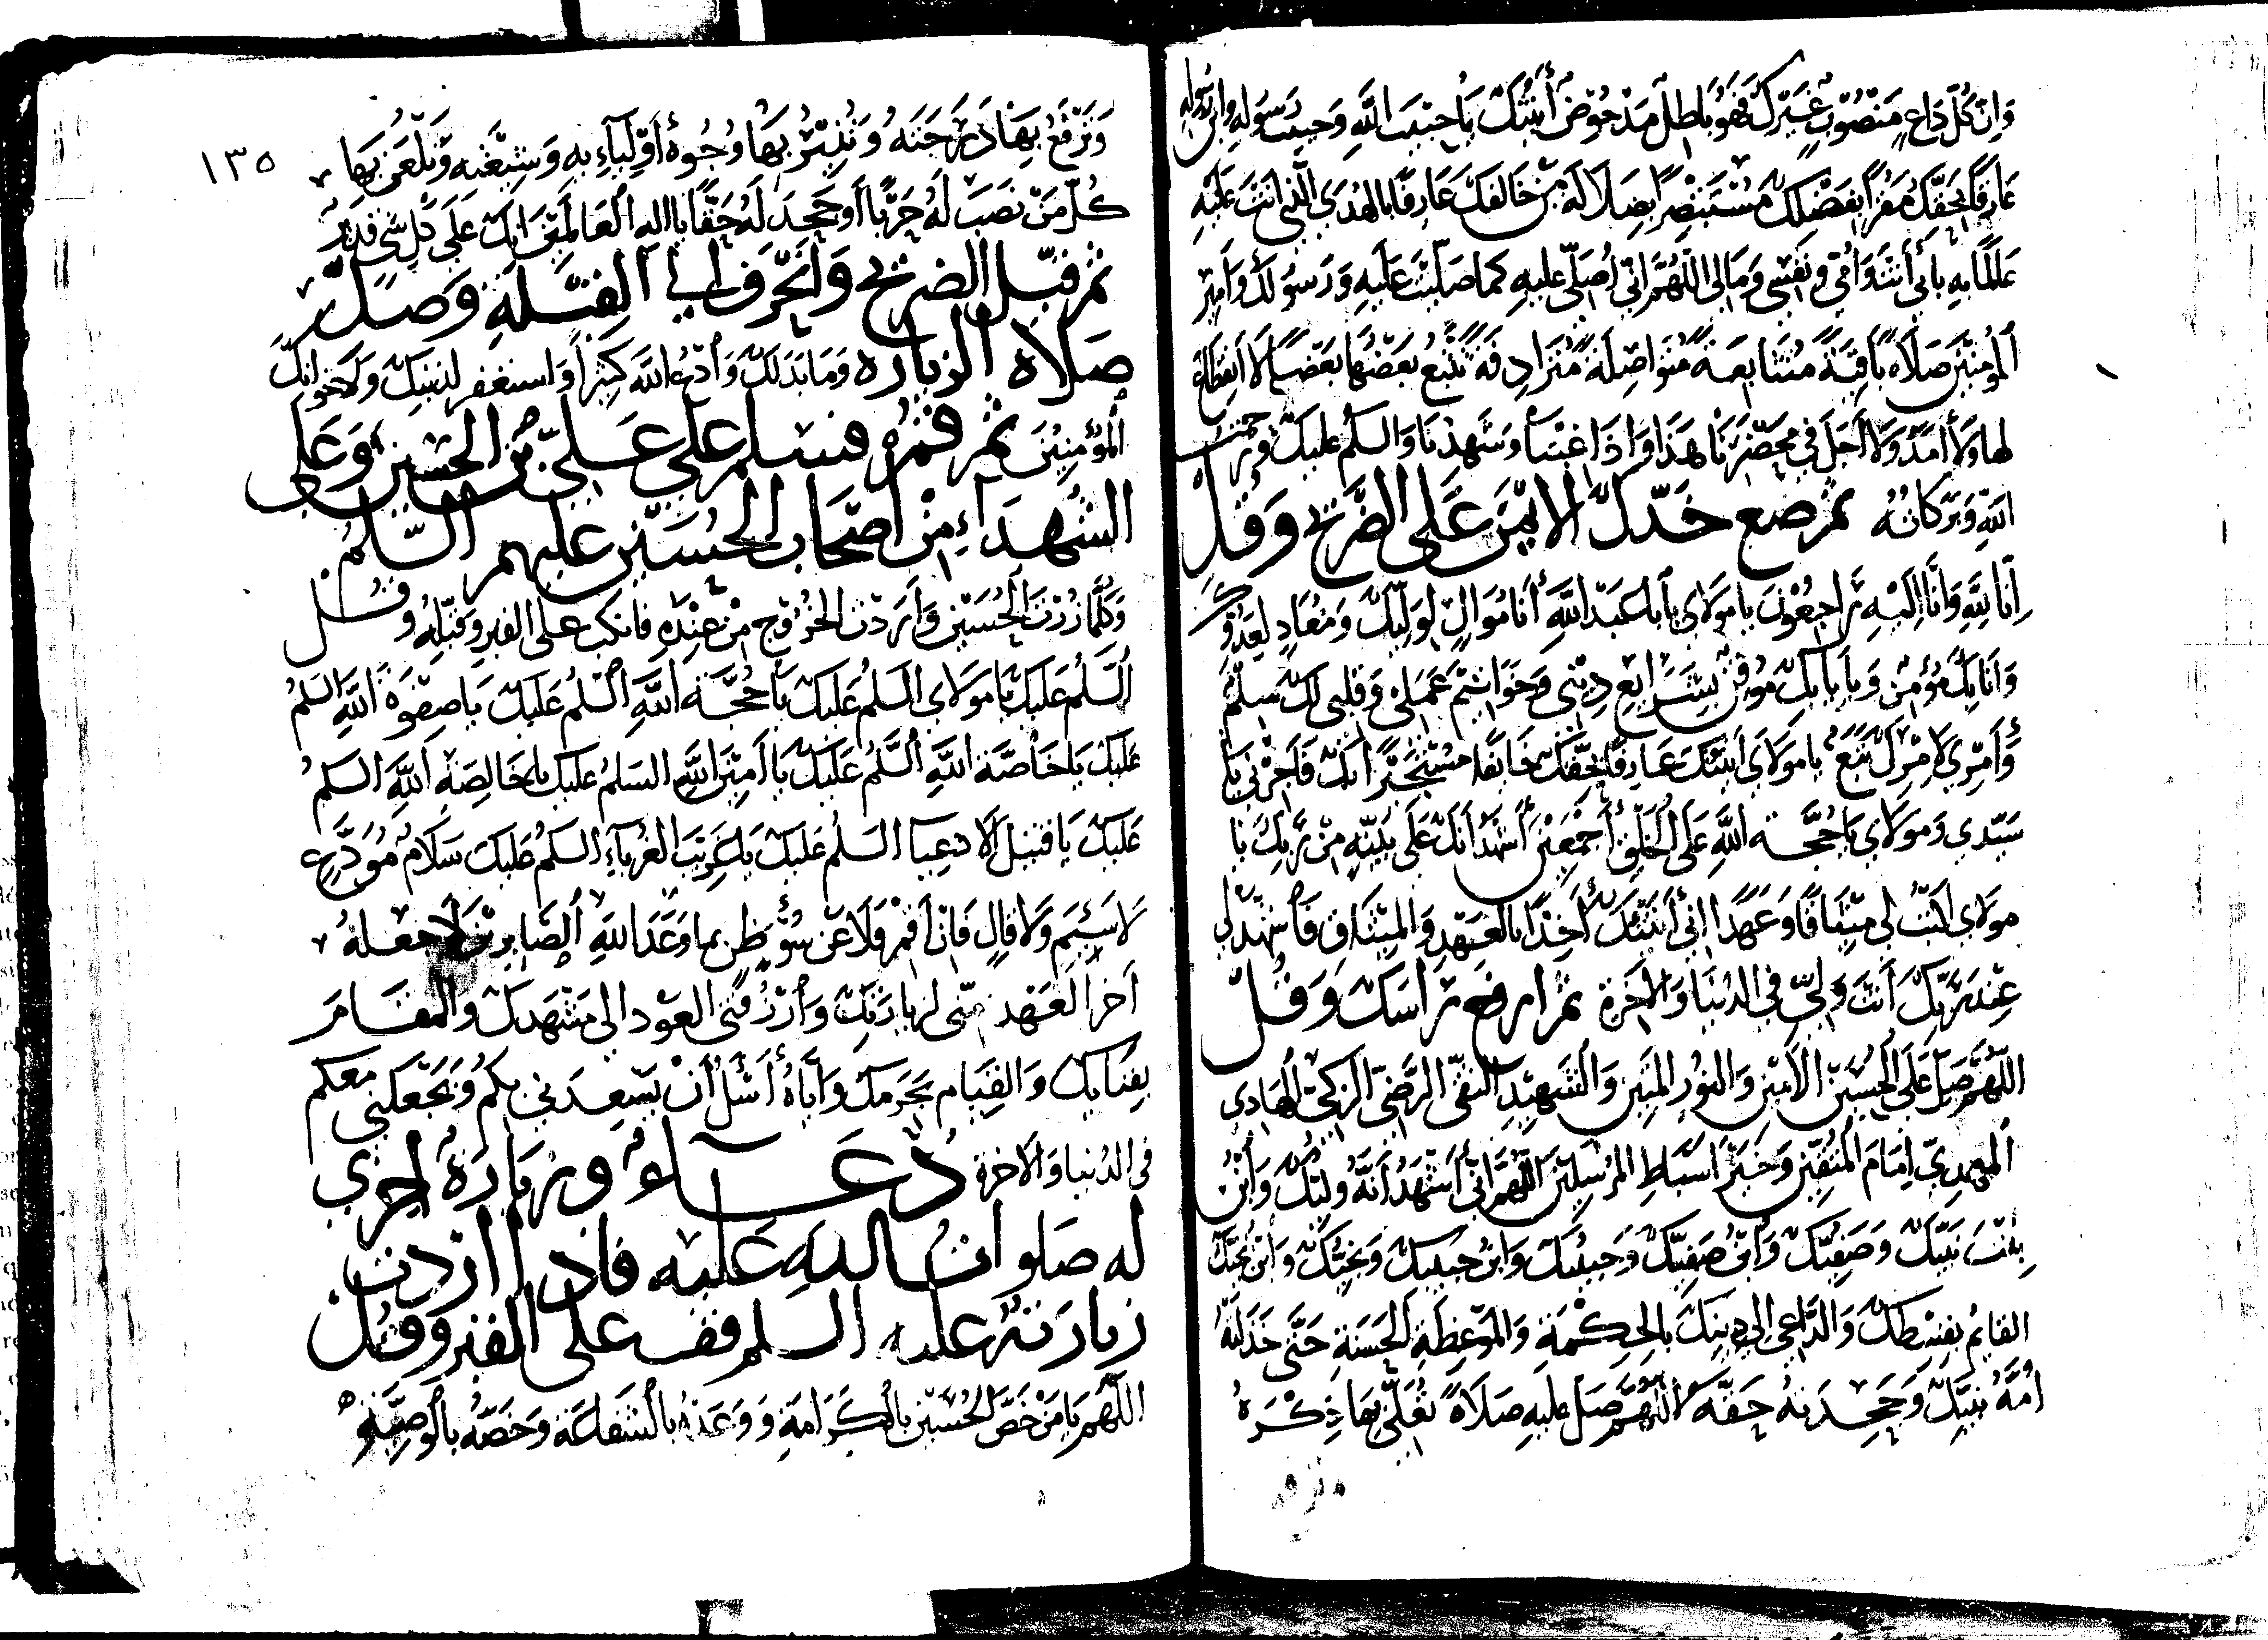 وَاِنَّ كُلَّ دَاعٍ مَنْصُوبٍ غَيْرِكَ فَهُوَ بَاطِلٌ مَدْحُوضٌ أَتَيْتُكَ يَا حَبِيبَ اللَّهِ وَحَبِيبَ رَسُولِهِ وابن رسوله
عَارِفًا بِحَقِّكَ مُقِرًّا بِفَضْلِكَ مُسْتَبْصِرًا بِضَلَالَةِ مَنْ خَالَفَكَ عَارِفًا بِالْهُدَى الَّذِي أَنْتَ عَلَيْهِ
عَالِمًا بِهِ بِأَبِي أَنْتَ وَأُمِّي وَنَفْسِي وَمَالِي اللَّهُمَّ إِنِّي أُصَلِّي عَلَيْهِ كَمَا صَلَّيْتَ عَلَيْهِ وَرَسُولُكَ وَأَمِيرُ
الْمُؤْمِنِينَ صَلَاةً بَاقِيَةً مُتَتَابِعَةً مُتَوَاصِلَةً مُتَرَادِفَةً تَتْبَعُ بَعْضُهَا بَعْضًا لَا انْقِطَاعَ
لها وَلَا أَمَدَ وَلَا أَجَلَ فِي مَحْضَرِنَا هَذَا وَإِذَا غِبْنَا وَشَهِدْنَا وَالسَّلَمُ عَلَيْكَ وَرَحْمَتُ
اللَّهِ وَبَرَكَاتُهُ ثم ضع خَدَّكَ الايْمَنَ عَلَى الضَّرِيحِ وَقُلْ
اِنَّا لِلَّهِ وَإِنَّا إِلَيْهِ رَاجِعُونَ يَا مَوْلَايَ يَا أَبَا عَبْدِ اللَّهِ أَنَا مُوَالٍ لِوَلِيِّكَ وَمُعَادٍ لِعَدُوِّكَ
وَأَنَا بِكَ مُؤْمِنٌ وَبِإِيَابِكَ مُوقِنٌ بِشَرَايِعِ دِينِي وَخَوَاتِيمِ عَمَلِي وَقَلْبِي لَكَ سِلْمٌ
وَأَمْرِي لِأَمْرِكَ تَبَعٌ يَا مَوْلَايَ أَتَيْتُكَ عَارِفًا بِحَقِّكَ خَائِفًا مُسْتَجِيرًا بِكَ فَأَجِرْنِي يَا
سَيِّدِي وَمَوْلَايَ يَا حُجَّةَ اللَّهِ عَلَى الْخَلْقِ أَجْمَعِينَ أَشْهَدُ أَنَّكَ عَلَى بَيِّنَةٍ مِنْ رَبِّكَ يَا
مَوْلَايَ اكْتُبْ لِي مِيثَاقًا وَعَهْدًا إِنِّي أَتَيْتُكَ أَخِذًا بِالْعَهْدِ وَالْمِيثَاقِ فَاشْهَدْ لِي
عِنْدَ رَبِّكَ أَنْتَ وَلِيِّي فِي الدُّنْيَا وَالْآخِرَةِ ثم ارفع رَاسَكَ وَقُلْ
اللَّهُمَّ صَلِّ عَلَى الْحُسَيْنِ الْأَمِينِ وَالنُّورِ الْمُبِينِ وَالشَّهِيدِ التَّقِيِّ الرَّضِيِّ الزَّكِيِّ الْهَادِي
الْمَهْدِيِّ إِمَامِ الْمُتَّقِينَ وَخَيْرِ أَسْبَاطِ الْمُرْسَلِينَ اللَّهُمَّ إِنِّي أَشْهَدُ أَنَّهُ وَلِيُّكَ وَابْنُ
بِنْتِ نَبِيِّكَ وَصَفِيُّكَ وَابْنُ صَفِيِّكَ وَحَبِيبُكَ وَابْنُ حَبِيبِكَ وَنَجِيُّكَ وَابْنُ نَجِيِّكَ
القَائِمُ بِقِسْطِكَ وَالدَّاعِي إِلَى دِينِكَ بِالْحِكْمَةِ وَالْمَوْعِظَةِ الْحَسَنَةِ حَتَّى خَذَلَتْهُ
أُمَّةُ نَبِيِّكَ وَجَحَدَتْهُ حَقَّهُ اللَّهُمَّ صَلِّ عَلَيْهِ صَلَاةً تُعْلِي بِهَا ذِكْرَهُ
١٣٥
وَتَرْفَعُ بِهَا دَرَجَتَهُ وَتُنِيرُ بِهَا وُجُوهَ أَوْلِيَاءِ بِهِ وَشِيعَتِهِ وَتَلْعَنُ بِهَا
كُلَّ مَنْ نَصَبَ لَهُ حَرْبًا أَوْ جَحَدَ لَهُ حَقًّا يَا إِلَهَ الْعَالَمِينَ إِنَّكَ عَلَى كُلِّ شَيْءٍ قَدِيرٌ
ثم قبّل الضريح وَانْحَرِفْ إِلَى الْقِبْلَةِ وَصَلِّ
صَلَاةَ الزيارة وَمَا بَدَا لَكَ وَادْعُ اللَّهَ كَثِيرًا وَاسْتَغْفِرْ لِذَنْبِكَ وَلِإِخْوَانِكَ
الْمُؤْمِنِينَ ثم قُمْ فسلم عَلَى عَلِيِّ بْنِ الْحُسَيْنِ وَعَلَى
الشُّهَدَاءِ مِنْ أَصْحَابِ الْحُسَيْنِ عَلَيْهِمُ السَّلَمُ
وَكُلَّمَا زُرْتَ الْحُسَيْنَ وَأَرَدْتَ الْخُرُوجَ مِنْ عِنْدِهِ فَانْكَبَّ عَلَى الْقَبْرِ وَقَبِّلْهُ وَقُلْ
السَّلَمُ عَلَيْكَ يَا مَوْلَايَ السَّلَمُ عَلَيْكَ يَا حُجَّةَ اللَّهِ السَّلَمُ عَلَيْكَ يَا صِفْوَةَ اللَّهِ السَّلَمُ
عَلَيْكَ يَا خَاصَّةَ اللَّهِ السَّلَمُ عَلَيْكَ يَا أَمِينَ اللَّهِ السَّلَمُ عَلَيْكَ يَا خَالِصَةَ اللَّهِ السَّلَمُ
عَلَيْكَ يَا قَتِيلَ الْأَدْعِيَا السَّلَمُ عَلَيْكَ يَا غَرِيبَ الْغُرَبَاءِ السَّلَمُ عَلَيْكَ سَلَامَ مُوَدِّعٍ
لَا سَئِمٍ وَلَا قَالٍ فَإِنْ أُقِمْ فَلَا عَنْ سُوءِ ظَنٍّ بِمَا وَعَدَ اللَّهُ الصَّابِرِينَ لَا جَعَلَهُ
آخِرَ الْعَهْدِ مِنِّي لِزِيَارَتِكَ وَارْزُقْنِي الْعَوْدَ إِلَى مَشْهَدِكَ وَالْمَقَامَ
بِفِنَائِكَ وَالْقِيَامَ بِحَرَمِكَ وَإِيَّاهُ أَسْئَلُ أَنْ يُسْعِدَنِي بِكُمْ وَيَجْعَلَنِي مَعَكُمْ
فِي الدُّنْيَا وَالْآخِرَةِ دُعَاءٌ وَزِيَارَةٌ أُخْرَى
له صَلَوَاتُ اللهِ عَلَيْهِ فَإِذَا أَرَدْتَ
زِيَارَتَهُ عَلَيْهِ السلم فقف عَلَى الْقَبْرِ وَقُلْ
اللَّهُمَّ يَا مَنْ خَصَّ الْحُسَيْنَ بِالْكَرَامَةِ وَوَعَدَهُ بِالشَّفَاعَةِ وَخَصَّهُ بِالْوَصِيَّةِ